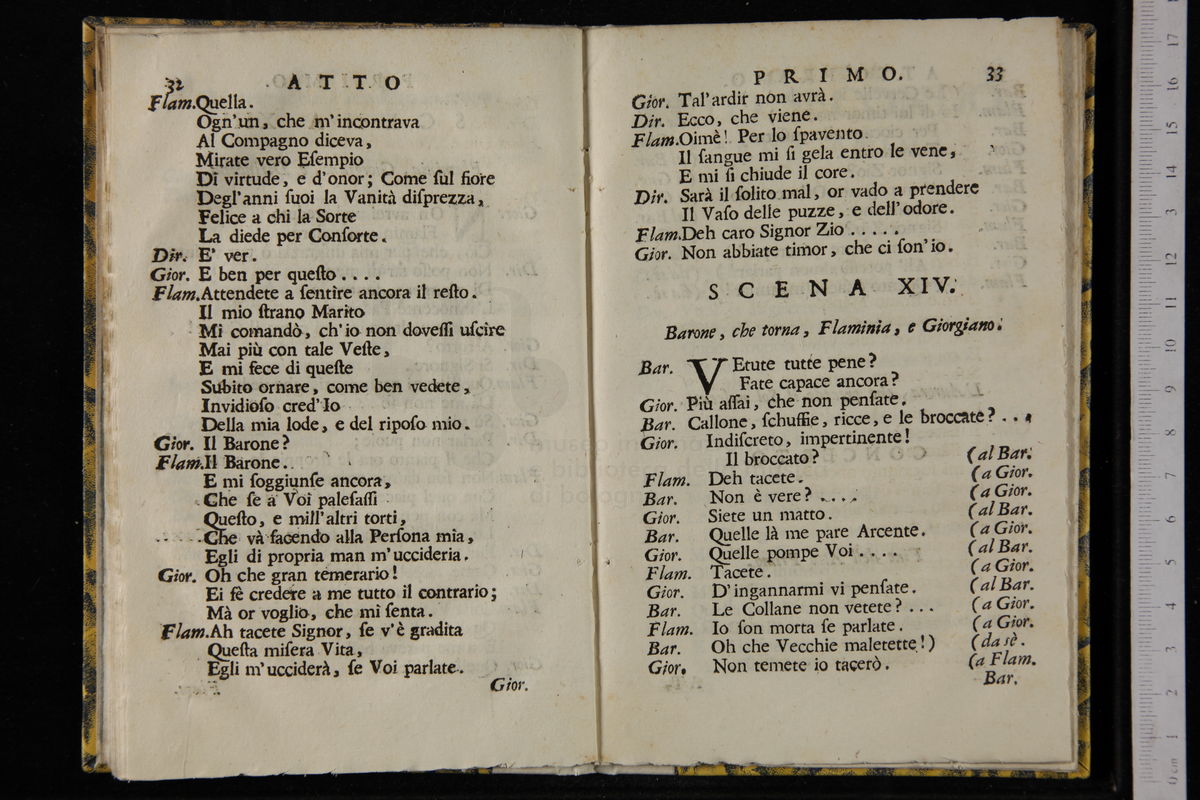 32 ATTO
Flam.Quella.
Ogn'un, che m'incontrava
Al Compagno diceva,
Mirate vero Eſempio
Di virtude, e d'onor; Come ſul fiore
Degl'anni ſuoi la Vanità diſprezza,
Felice a chi la Sorte
La diede per Conſorte.
Dir. E' ver.
Gior. E ben per queſto ....
Flam.Attendete a ſentire ancora il reſto.
Il mio ſtrano Marito
Mi comandò, ch'io non doveſſi uſcire
Mai più con tale Veſte,
E mi fece di queſte
Subito ornare, come ben vedete,
Invidioſo cred'Io
Della mia lode, e del ripoſo mio.
Gior. Il Barone?
Flam.Il Barone.
E mi ſoggiunſe ancora,
Che ſe a Voi paleſaſſi
Queſto, e mill'altri torti,
Che và facendo alla Perſona mia,
Egli di propria man m'uccideria.
Gior. Oh che gran temerario!
Ei fè credere a me tutto il contrario;
Mà or voglio, che mi ſenta.
Flam.Ah tacete Signor, ſe v'è gradita
Queſta miſera Vita,
Egli m'ucciderà, ſe Voi parlate.
Gior.
PRIMO. 33
Gior. Tal'ardir non avrà.
Dir. Ecco, che viene.
Flam.Oimè! Per lo ſpavento
Il ſangue mi ſi gela entro le vene,
E mi ſi chiude il core.
Dir. Sarà il ſolito mal, or vado a prendere
Il Vaſo delle puzze, e dell'odore.
Flam.Deh caro Signor Zio .....
Gior. Non abbiate timor, che ci ſon'io.
SCENA XIV.
Barone, che torna, Flaminia, e Giorgiano.
Bar. VEtute tutte pene?
Fate capace ancora?
Gior. Più aſſai, che non penſate.
Bar. Callone, ſchuffie, ricce, e le broccate? ...
Gior. Indiſcreto, impertinente!
Il broccato? (al Bar.
Flam. Deh tacete. (a Gior.
Bar. Non è vere? .... (a Gior.
Gior. Siete un matto. (al Bar.
Bar. Quelle là me pare Arcente. (a Gior.
Gior. Quelle pompe Voi .... (al Bar.
Flam. Tacete. (a Gior.
Gior. D'ingannarmi vi penſate. (al Bar.
Bar. Le Collane non vetete? ... (a Gior.
Flam. Io ſon morta ſe parlate. (a Gior.
Bar. Oh che Vecchie maletette!) (da sè.
Gior. Non temete io tacerò. (a Flam.
Bar.